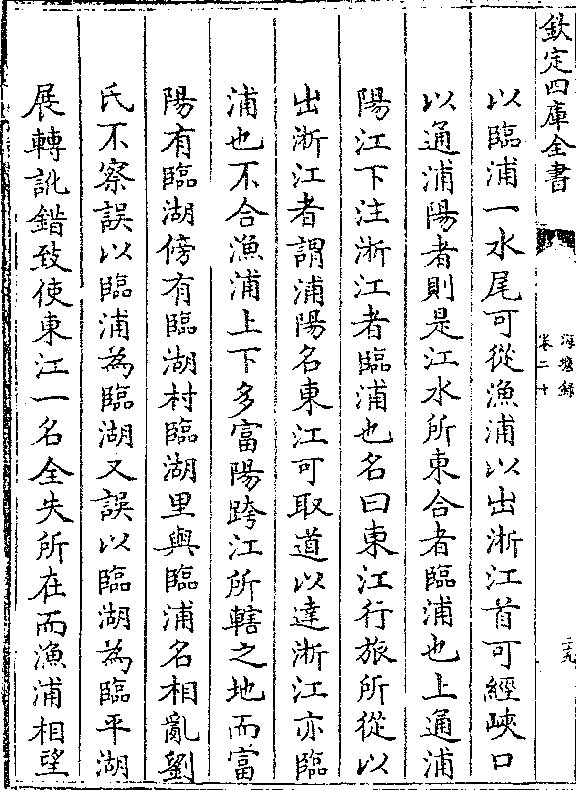 欽定四庫全書
海塘録
卷二十
二九
以臨浦一水尾可從漁浦以出浙江首可經峽口
以通浦陽者則是江水所東合者臨浦也上通浦
陽江下注浙江者臨浦也名曰東江行旅所從以
出浙江者謂浦陽名東江可取道以達浙江亦臨
浦也不合漁浦上下多富陽跨江所轄之地而富
陽有臨湖傍有臨湖村臨湖里與臨浦名相亂劉
氏不察誤以臨浦為臨湖又誤以臨湖為臨平湖
展轉訛錯致使東江一名全失所在而漁浦相望